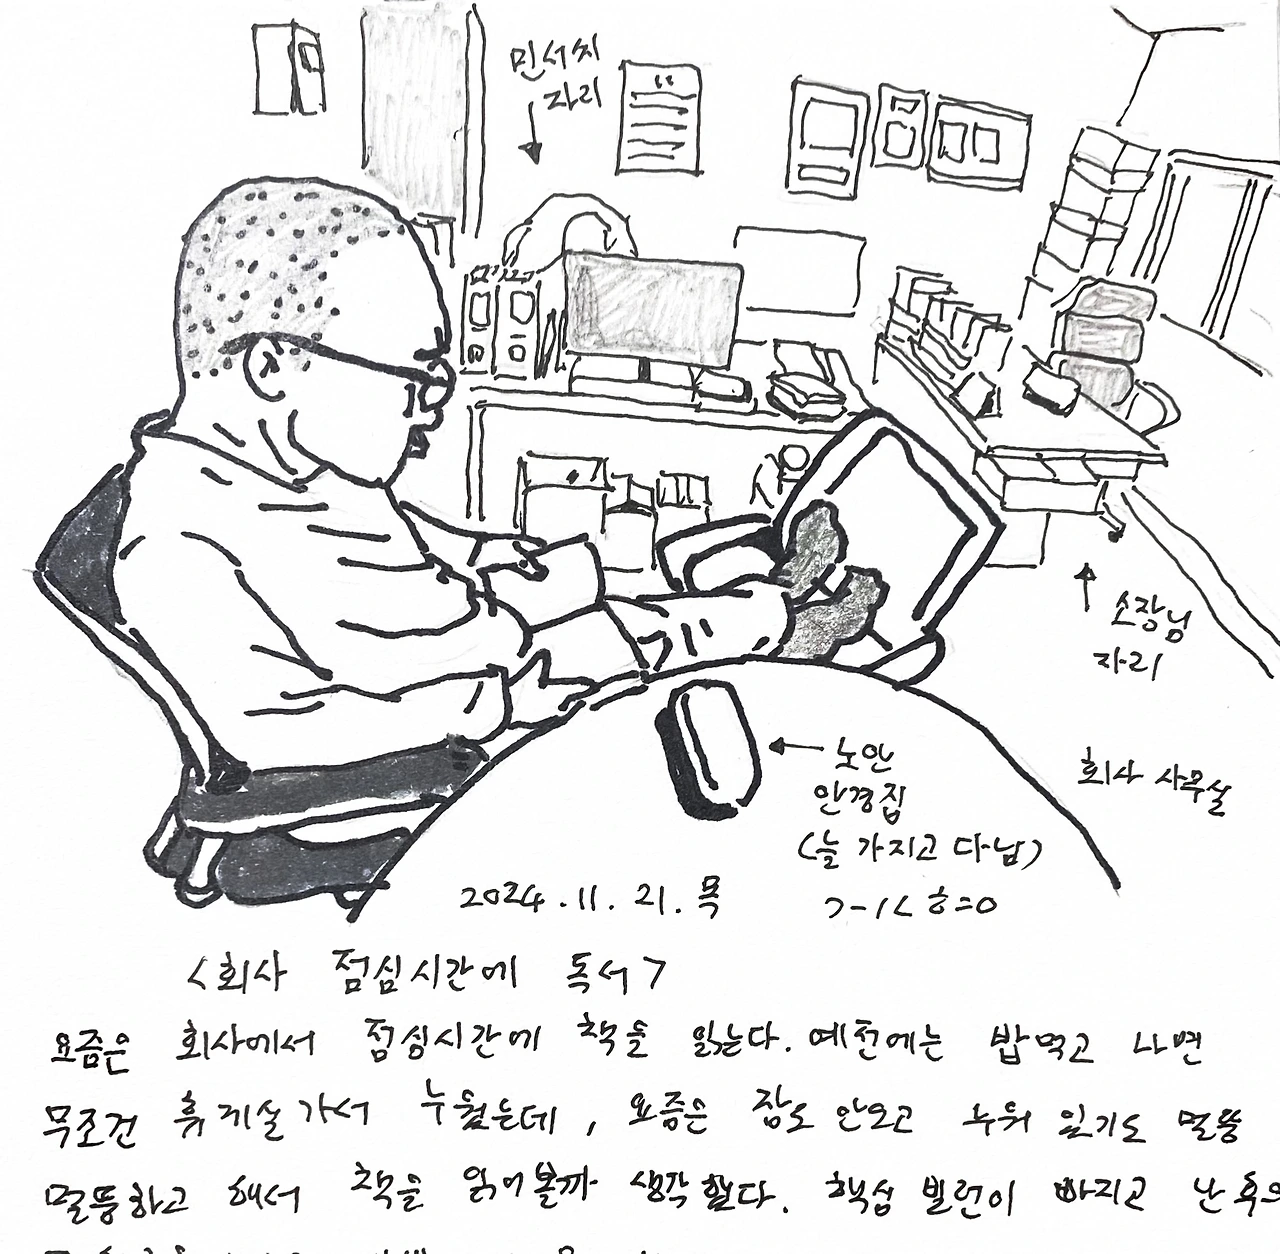 민서씨
자리
소장님
자리
회사 사무실
노안
안경집
(늘 가지고 다님)
2024.11.21.목
ㄱ-ㅣㄴ ㅎ=0
<회사 점심시간에 독서>
요즘은 회사에서 점심시간에 책을 읽는다. 예전에는 밥먹고 나면
무조건 휴게실가서 누웠는데, 요즘은 잠도 안오고 누워 있기도 멀뚱
멀뚱하고 해서 책을 읽어볼까 생각했다. 핵심 빌런이 빠지고 난 후의